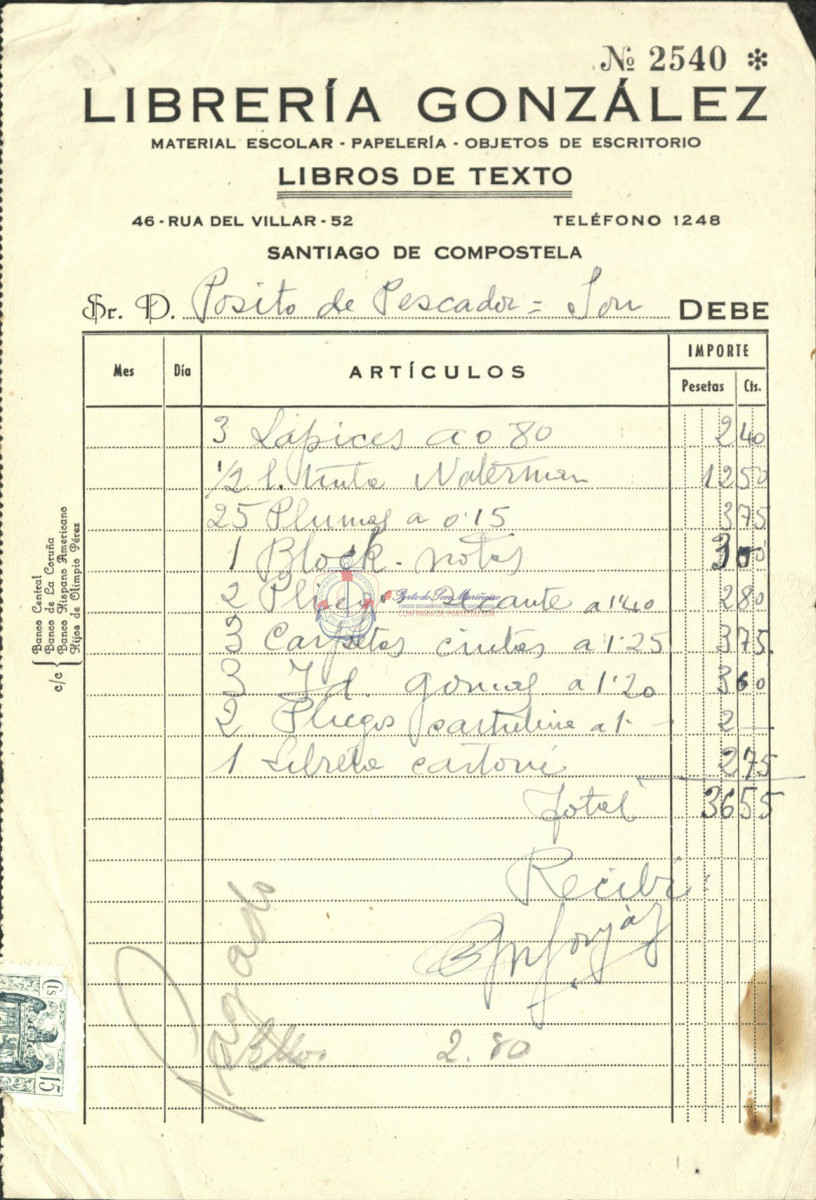 № 2540 *
LIBRERÍA GONZÁLEZ
MATERIAL ESCOLAR - PAPELERÍA - OBJETOS DE ESCRITORIO
LIBROS DE TEXTO
46 - RUA DEL VILLAR - 52 TELÉFONO 1248
SANTIAGO DE COMPOSTELA
Sr. D. Posito de Pescador = Son DEBE
Mes Día ARTÍCULOS IMPORTE
Pesetas Cts.
3 Lápices a 0 80 2 40
1/2 l. tinta Waterman 12 50
25 Plumas a 0'15 3 75
1 Block-notas 3 00
2 Pliegos secante a 1'40 2 80
3 Carpetas cintas a 1'25 3 75
3 Id. gomas a 1'20 3 60
2 Pliegos cartulina a 1- 2 —
1 Libreta cartoné 2 75
Total 36 55
Recibí:
Pagado
2.80
c/c
Banco Central
Banco de La Coruña
Banco Hispano Americano
Hijos de Olimpio Pérez
Porto do Son Mariñeiro
CONFRARÍA DE PORTO DO SON
15 Cts